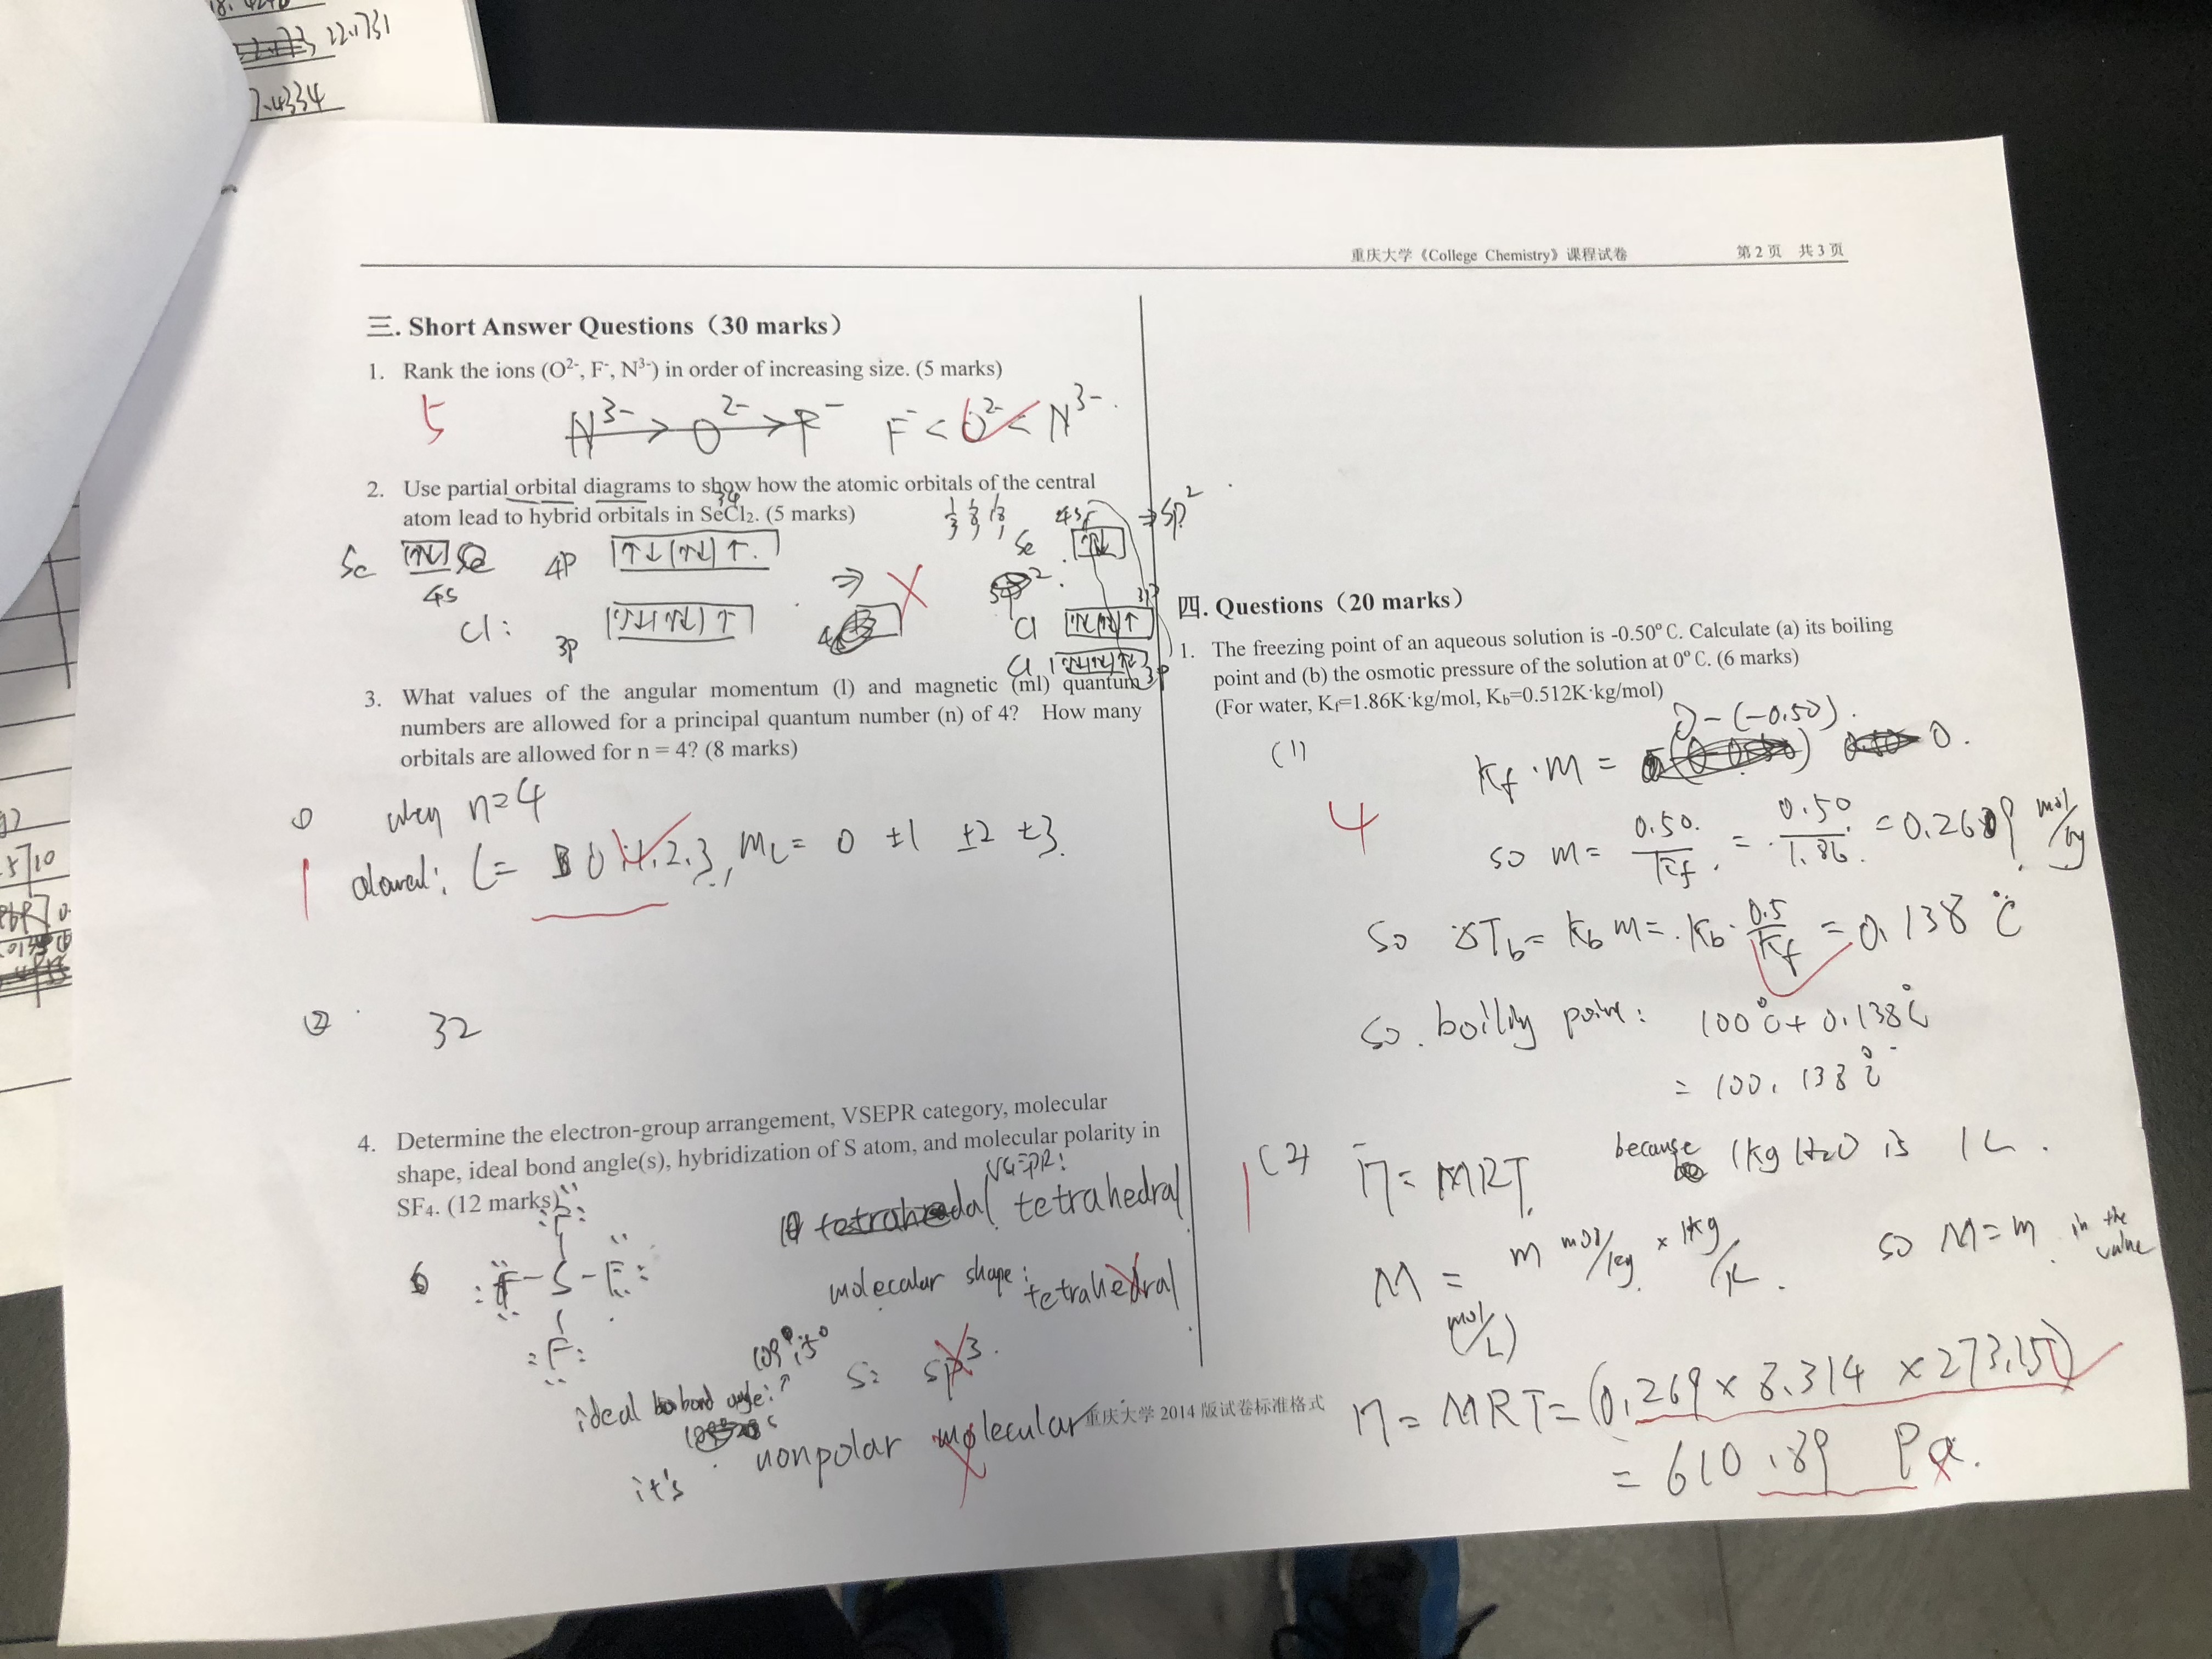 22.731
7.4334
重庆大学《College Chemistry》课程试卷 第 2 页 共 3 页
三. Short Answer Questions（30 marks）
1. Rank the ions (O²⁻, F⁻, N³⁻) in order of increasing size. (5 marks)
5
N³⁻ → O²⁻ → F⁻ F⁻ < O²⁻ < N³⁻.
2. Use partial orbital diagrams to show how the atomic orbitals of the central
atom lead to hybrid orbitals in SeCl₂. (5 marks)
34
Se ↑↓ 4s 4p ↑↓ ↑↓ ↑
Cl: 3p ↑↓ ↑↓ ↑
⇒
Se 4s ↑↓ ⇒ sp²
Cl ↑↓ ↑↓ ↑ 3p
Cl ↑↓ ↑↓ ↑↓ 3p
3. What values of the angular momentum (l) and magnetic (ml) quantum
numbers are allowed for a principal quantum number (n) of 4? How many
orbitals are allowed for n = 4? (8 marks)
① when n=4
1
allowed: l = 0, 1, 2, 3, mL = 0 ±1 ±2 ±3.
② 32
4. Determine the electron-group arrangement, VSEPR category, molecular
shape, ideal bond angle(s), hybridization of S atom, and molecular polarity in
SF₄. (12 marks)
VSEPR:
tetrahedral
6
:F:
:F-S-F:
:F:
molecular shape: tetrahedral
S: sp³.
ideal bond angle:
it's nonpolar molecular
重庆大学 2014 版试卷标准格式
四. Questions（20 marks）
1. The freezing point of an aqueous solution is -0.50°C. Calculate (a) its boiling
point and (b) the osmotic pressure of the solution at 0°C. (6 marks)
(For water, Kf=1.86K·kg/mol, Kb=0.512K·kg/mol)
(1) Kf · m = 0-(-0.50).
4
so m = 0.50/Kf = 0.50/1.86 = 0.269 mol/kg
so ΔTb = Kb m = Kb · 0.5/Kf = 0.138 °C
so boiling point: 100°C + 0.138°C
= 100.138°C
1
(2) π = MRT. because 1kg H₂O is 1L.
M (mol/L) = m mol/kg × 1kg/1L. so M = m in the value
π = MRT = (0.269 × 8.314 × 273.15)
= 610.89 Pa.